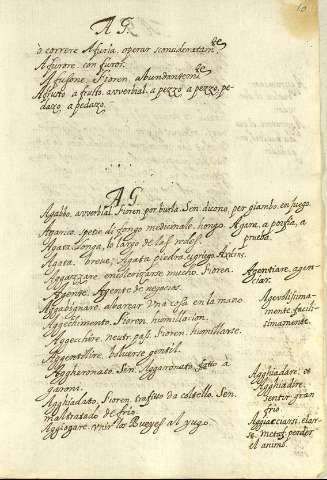 10
A G.
ò correre A furia, operar sconsideratam.te
A furore, con furor.
A fusone, Fioren. abundantem.te
A fusto a frusto, avverbial, a pezzo a pezzo, pe-
dazo, a pedazo.
A G.
Agabbo, avverbial. Fioren. por burla. Sen. dicono, per giambo, en juego.
Agarico, spetie di fongo medicinale, hongo. A gara, a porfia, a
prueba.
Agata longa, lo largo de las redes.
Agata breve, Agata piedra,
Aggazzare, encolerizarse mucho. Fioren.
Agente, Agente de negocios.
Aggavignare, abarcar una cosa en la mano
Aggecchimento, Fioren. humillacion.
Aggecchire, neutr. pass. Fioren. humillarse.
Aggentilire, bolverse gentil.
Aggheronato, Sen. Aggaronato, fatto à
garoni.
Agghiadato, Fioren. trafitto da coltello, Sen.
maltratado de frio.
Aggiogare, unir los Bueyes al yugo.
Agentiare, agen-
ciar.
Agevolissima-
mente, facilis-
simamente.
Agghiadare, et
Agghiadire,
sentir gran
frio
Agghiacciarsi, elar-
se, metaf. perder
el animo.